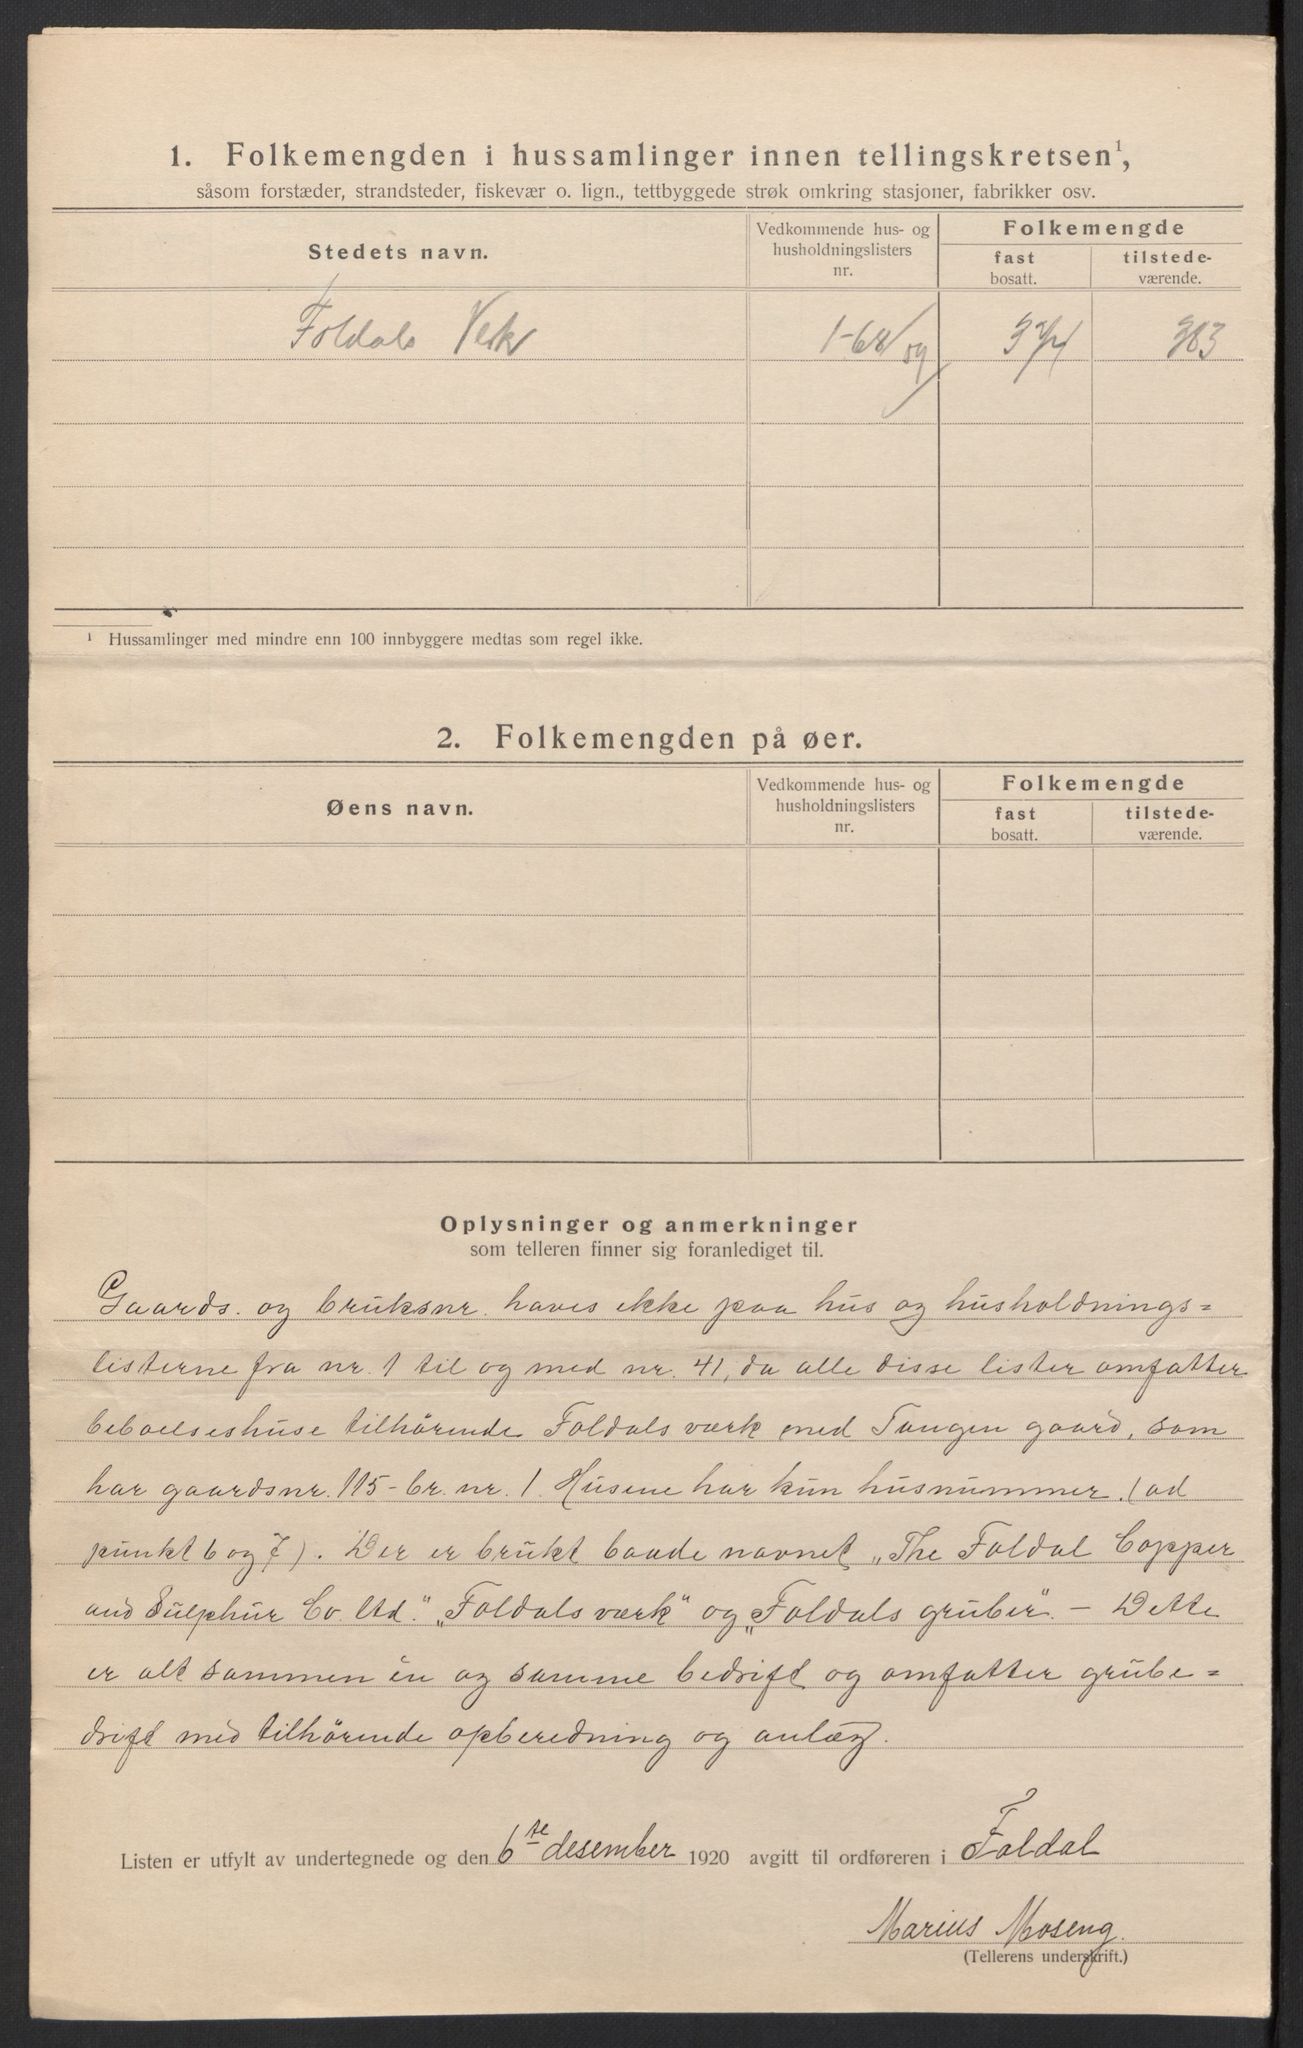 1. Folkemengden i hussamlinger innen tellingskretsen¹,
såsom forstæder, strandsteder, fiskevær o. lign., tettbyggede strøk omkring stasjoner, fabrikker osv.
Stedets navn.
Vedkommende hus- og husholdningslisters nr.
Folkemengde
fast bosatt.
tilstede-værende.
Foldals Verk 1-68 og 383
¹ Hussamlinger med mindre enn 100 innbyggere medtas som regel ikke.
2. Folkemengden på øer.
Øens navn.
Vedkommende hus- og husholdningslisters nr.
Folkemengde
fast bosatt.
tilstede-værende.
Oplysninger og anmerkninger
som telleren finner sig foranlediget til.
Gaards. og bruksnr. haves ikke paa hus og husholdnings=
listerne fra nr. 1 til og med nr. 41, da alle disse lister omfatter
beboelseshuse tilhörende Foldals værk med Tangen gaard, som
har gaardsnr. 115 - br. nr. 1. Husene har kun husnummer. (ad
punkt 6 og 7). Der er brukt baade navnet „The Foldal Copper
and Sulphur Co. ltd." „Foldals værk" og „Foldals gruber". - Dette
er alt sammen én og samme bedrift og omfatter grube=
drift med tilhörende opberedning og anlæg.
Listen er utfylt av undertegnede og den 6te desember 1920 avgitt til ordføreren i Foldal
Marius Moseng.
(Tellerens underskrift.)